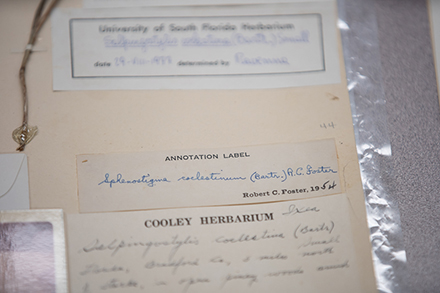 University of South Florida Herbarium
Salpingostylis coelestina (Bartr.) Small
date determined by
ANNOTATION LABEL
Sphenostigma coelestinum (Bartr.) R.C. Foster
Robert C. Foster, 1954
COOLEY HERBARIUM Ixia
Salpingostylis coelestina (Bartr.)
Small
Florida, Bradford Co, 2 miles north
of Starke, in open piney woods